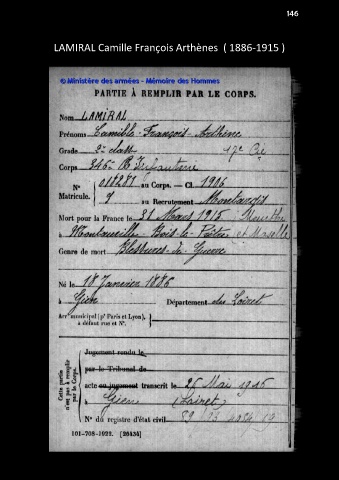 146
LAMIRAL Camille François Arthènes ( 1886-1915 )
© Ministère des armées - Mémoire des Hommes
PARTIE À REMPLIR PAR LE CORPS.
Nom LAMIRAL
Prénoms Camille François Arthène
Grade 2e classe 17e Cie
Corps 346e R Infanterie
N° 018281 au Corps. — Cl. 1906
Matricule. 9 au Recrutement Montargis
Mort pour la France le 31 Mars 1915 Meurthe
à Montauville Bois-le-Prêtre et Moselle
Genre de mort Blessures de Guerre
Né le 18 Janvier 1886
à Gien Département du Loiret
Arrt municipal (pr Paris et Lyon),
à défaut rue et N°.
Cette partie
n'est pas à remplir
par le Corps.
Jugement rendu le
par le Tribunal de
acte ou jugement transcrit le 25 Mai 1915
à Gien (Loiret)
N° du registre d'état civil
101-708-1922. [26434]